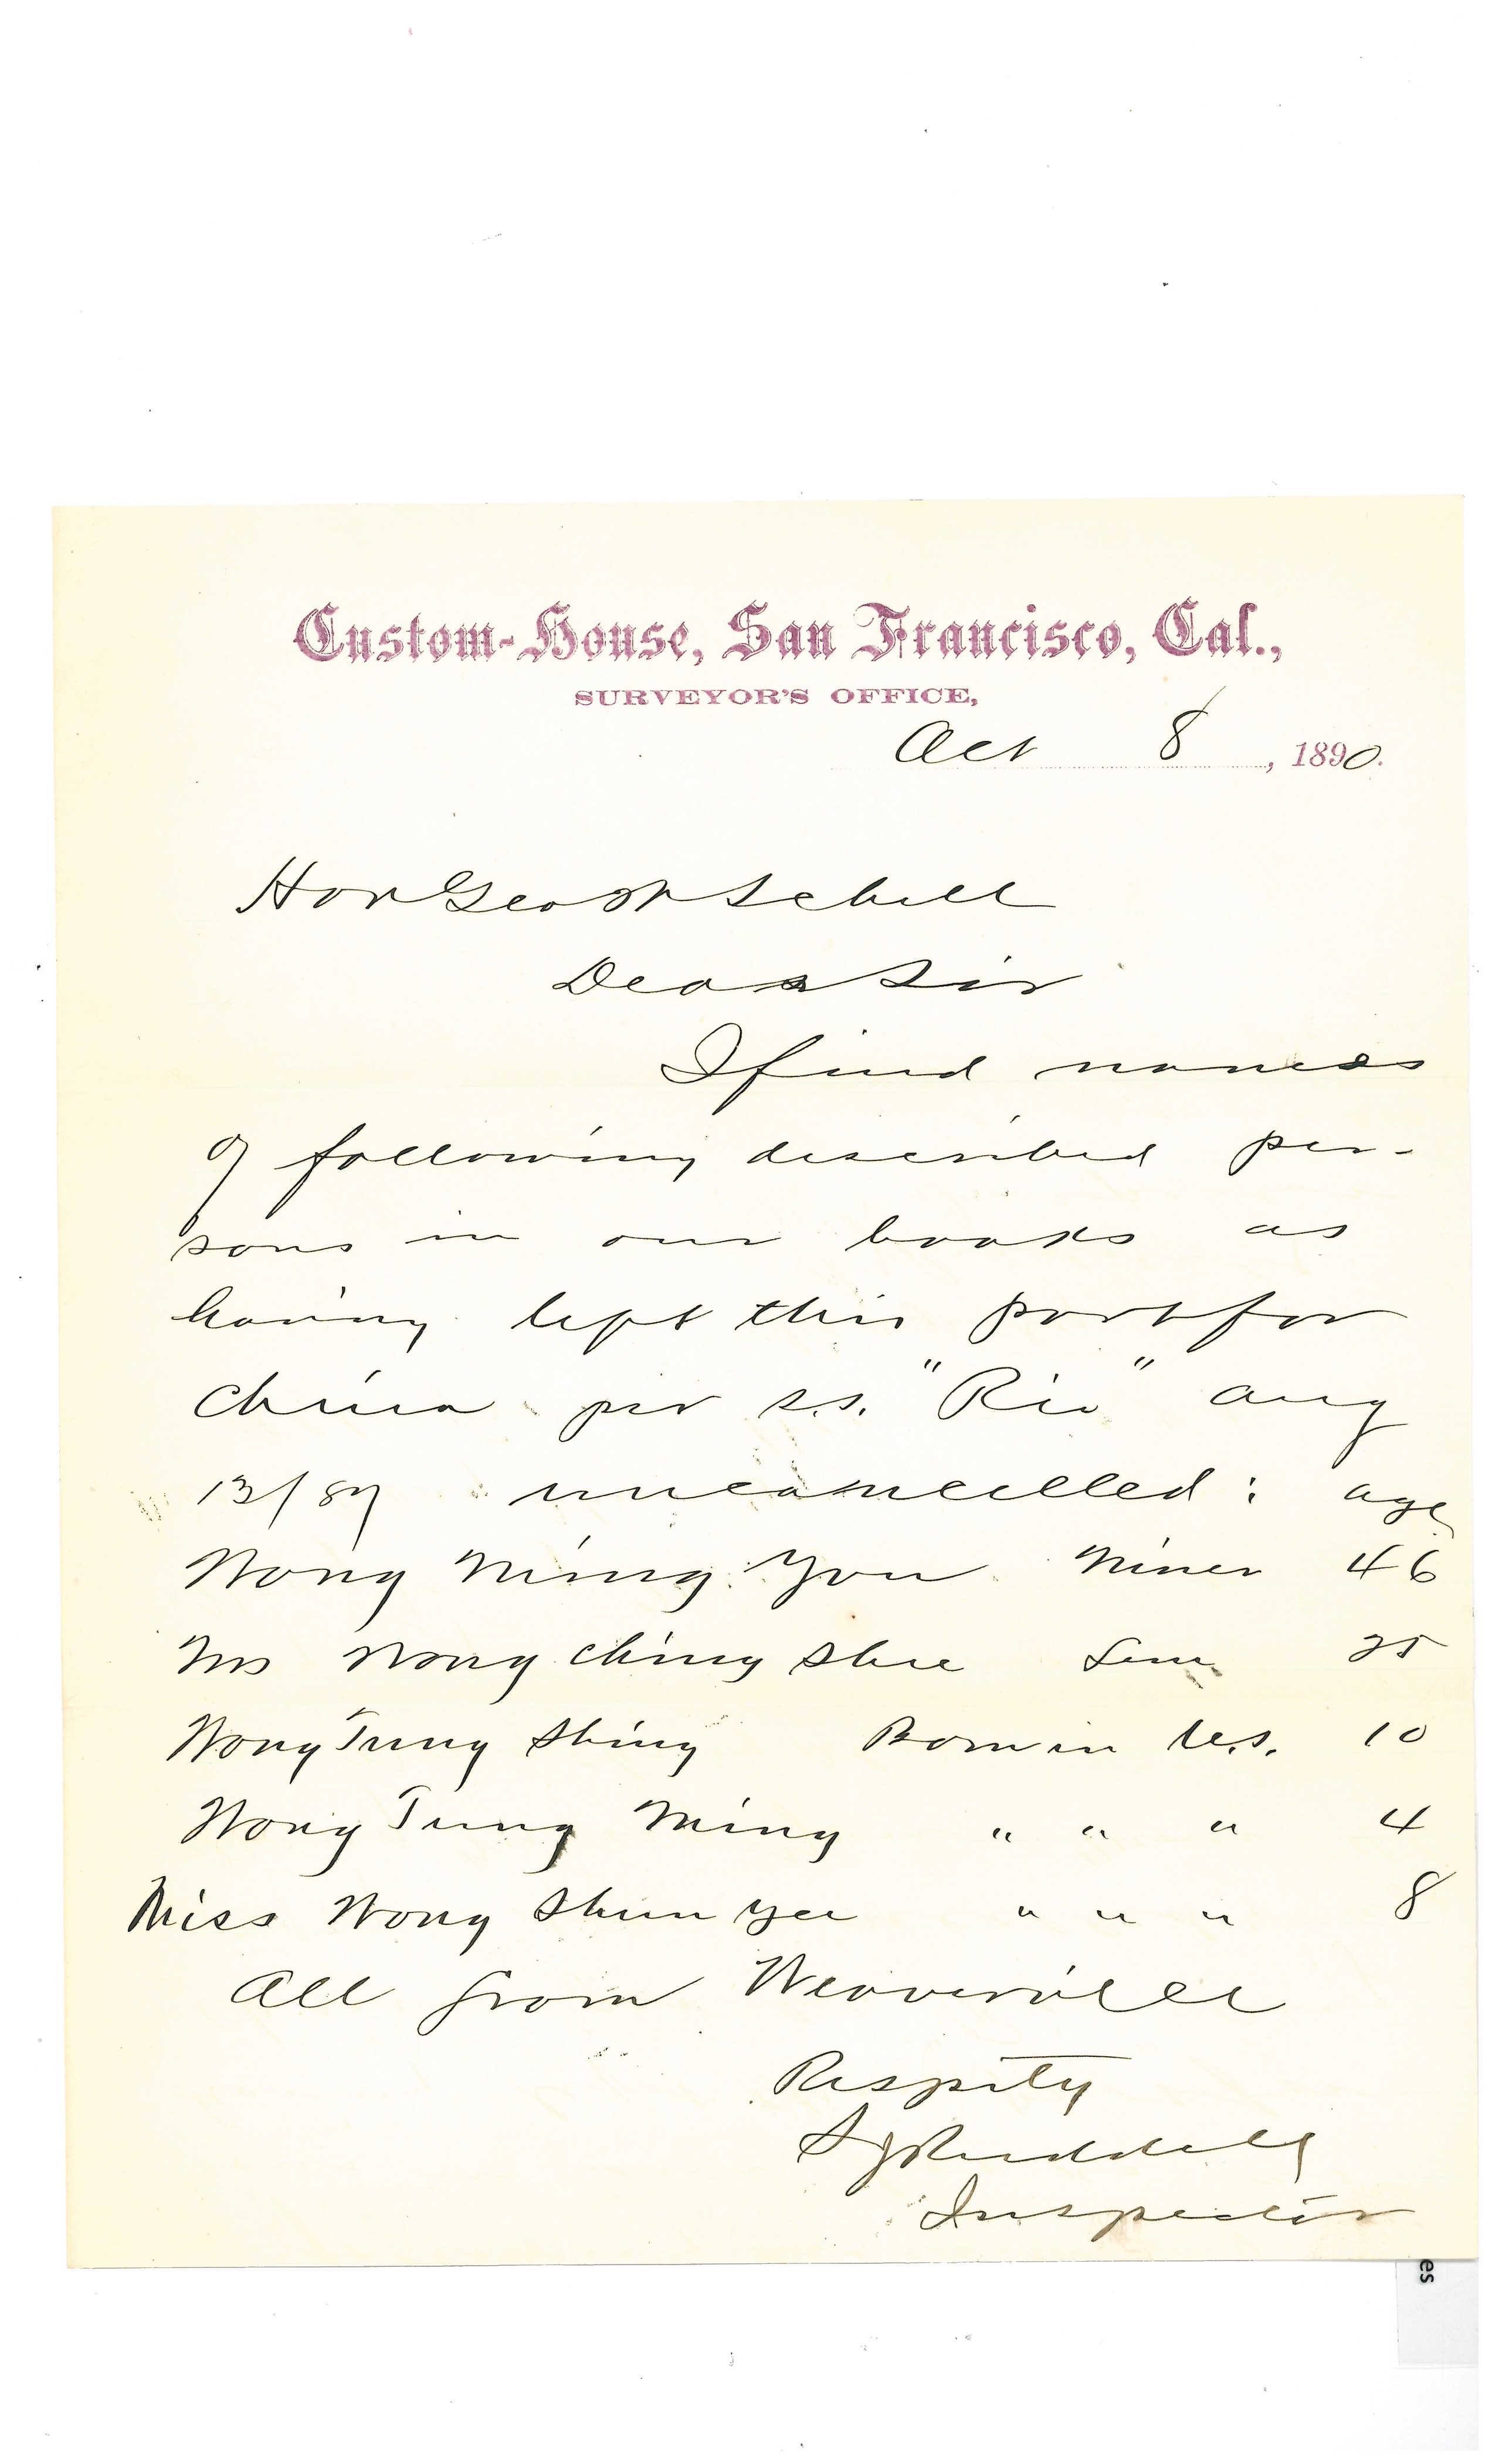 Custom-House, San Francisco, Cal.,
SURVEYOR'S OFFICE,
Oct 8, 1890.
Hon Geo W Schell
Dear Sir
I find names
of following described per-
sons in our books as
having left this port for
China per s.s. "Rio" Aug
13/87 uncancelled: age
Wong Ming You Miner 46
Mrs Wong Ching Shee 25
Wong Tung Shing Born in U.S. 10
Wong Tung Ming " " " 4
Miss Wong Shun Yee " " " 8
All from Weaverville
Respity
S J Ruddell
Inspector
es